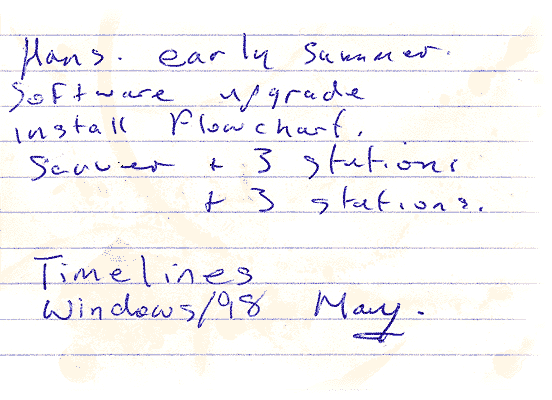 early summer.
Software upgrade
install Flowchart.
+ 3 stations
+ 3 stations.
Timelines
Windows/98 May.